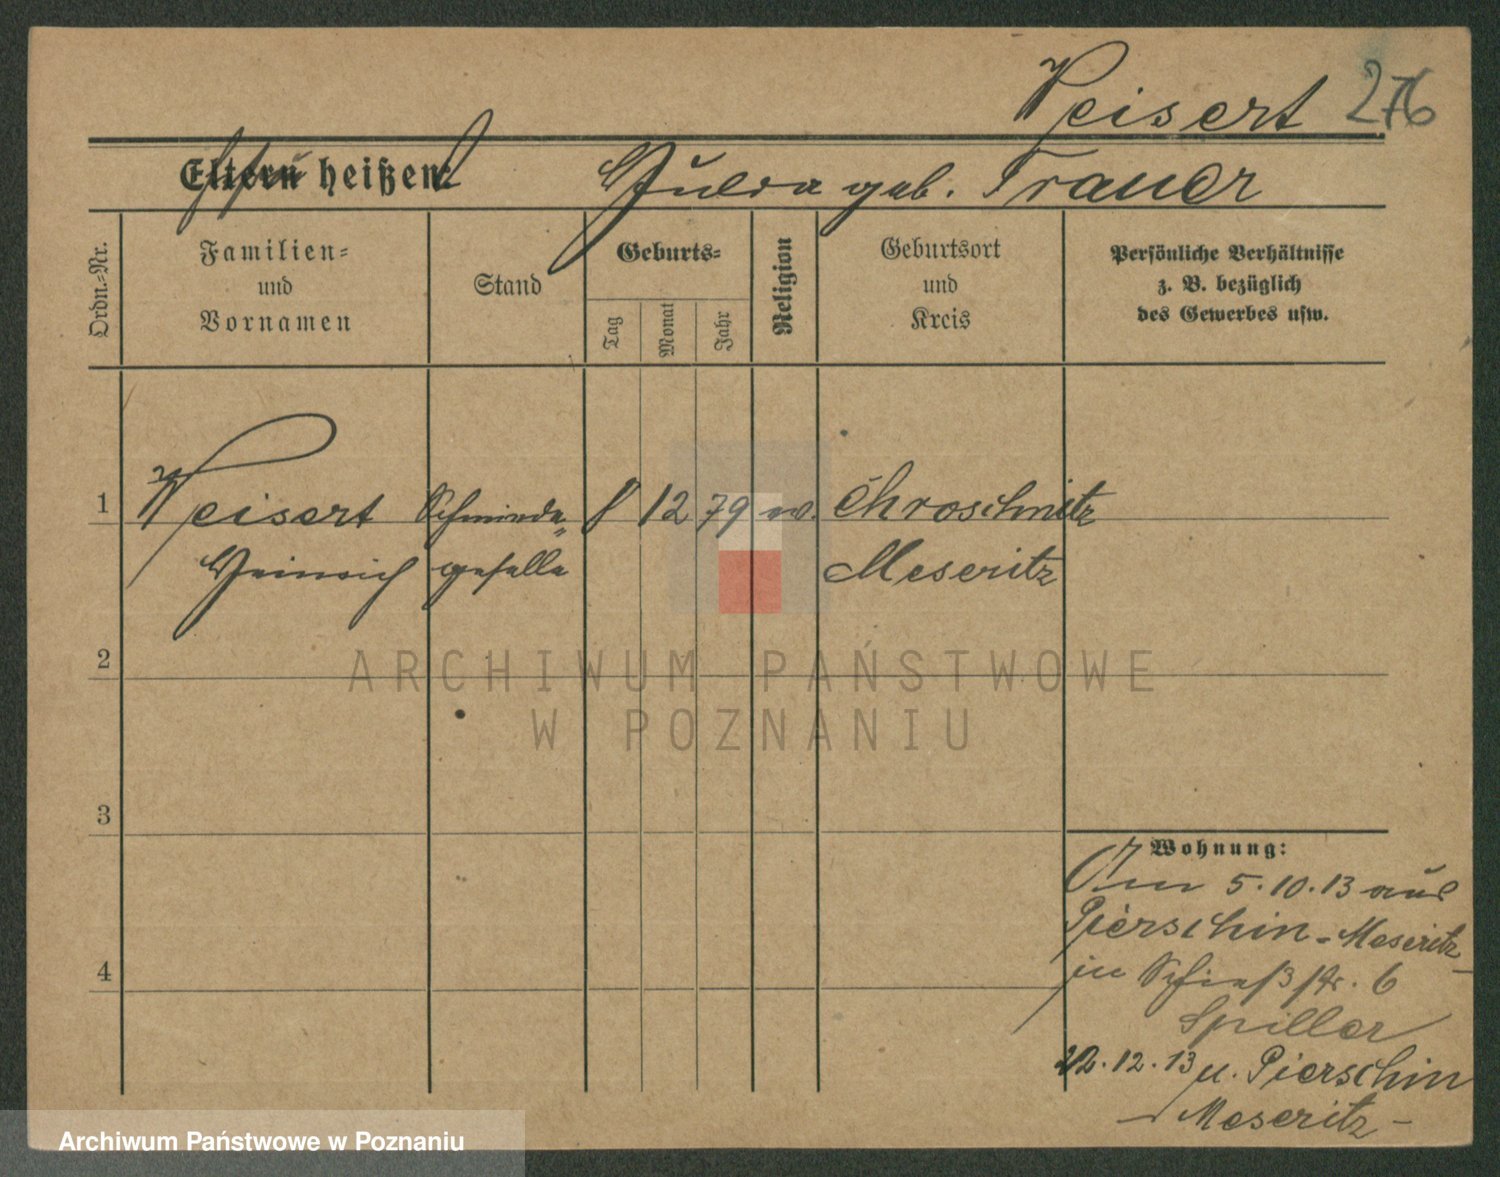 Weisert 276
Eltern heißen: Hulda geb. Trauer
Ordn.-Nr.
Familien-
und
Vornamen
Stand
Geburts-
Tag
Monat
Jahr
Religion
Geburtsort
und
Kreis
Persönliche Verhältnisse
z. B. bezüglich
des Gewerbes usw.
1 Weisert Schmiede- 8 12 79 ev. Chroschnitz
Heinrich geselle Meseritz
2
3
4
Wohnung:
Am 5.10.13 aus
Pierschin-Meseritz-
in Schießstr. 6
Spiller
12.13 n. Pierschin
-Meseritz-
ARCHIWUM PAŃSTWOWE
W POZNANIU
Archiwum Państwowe w Poznaniu